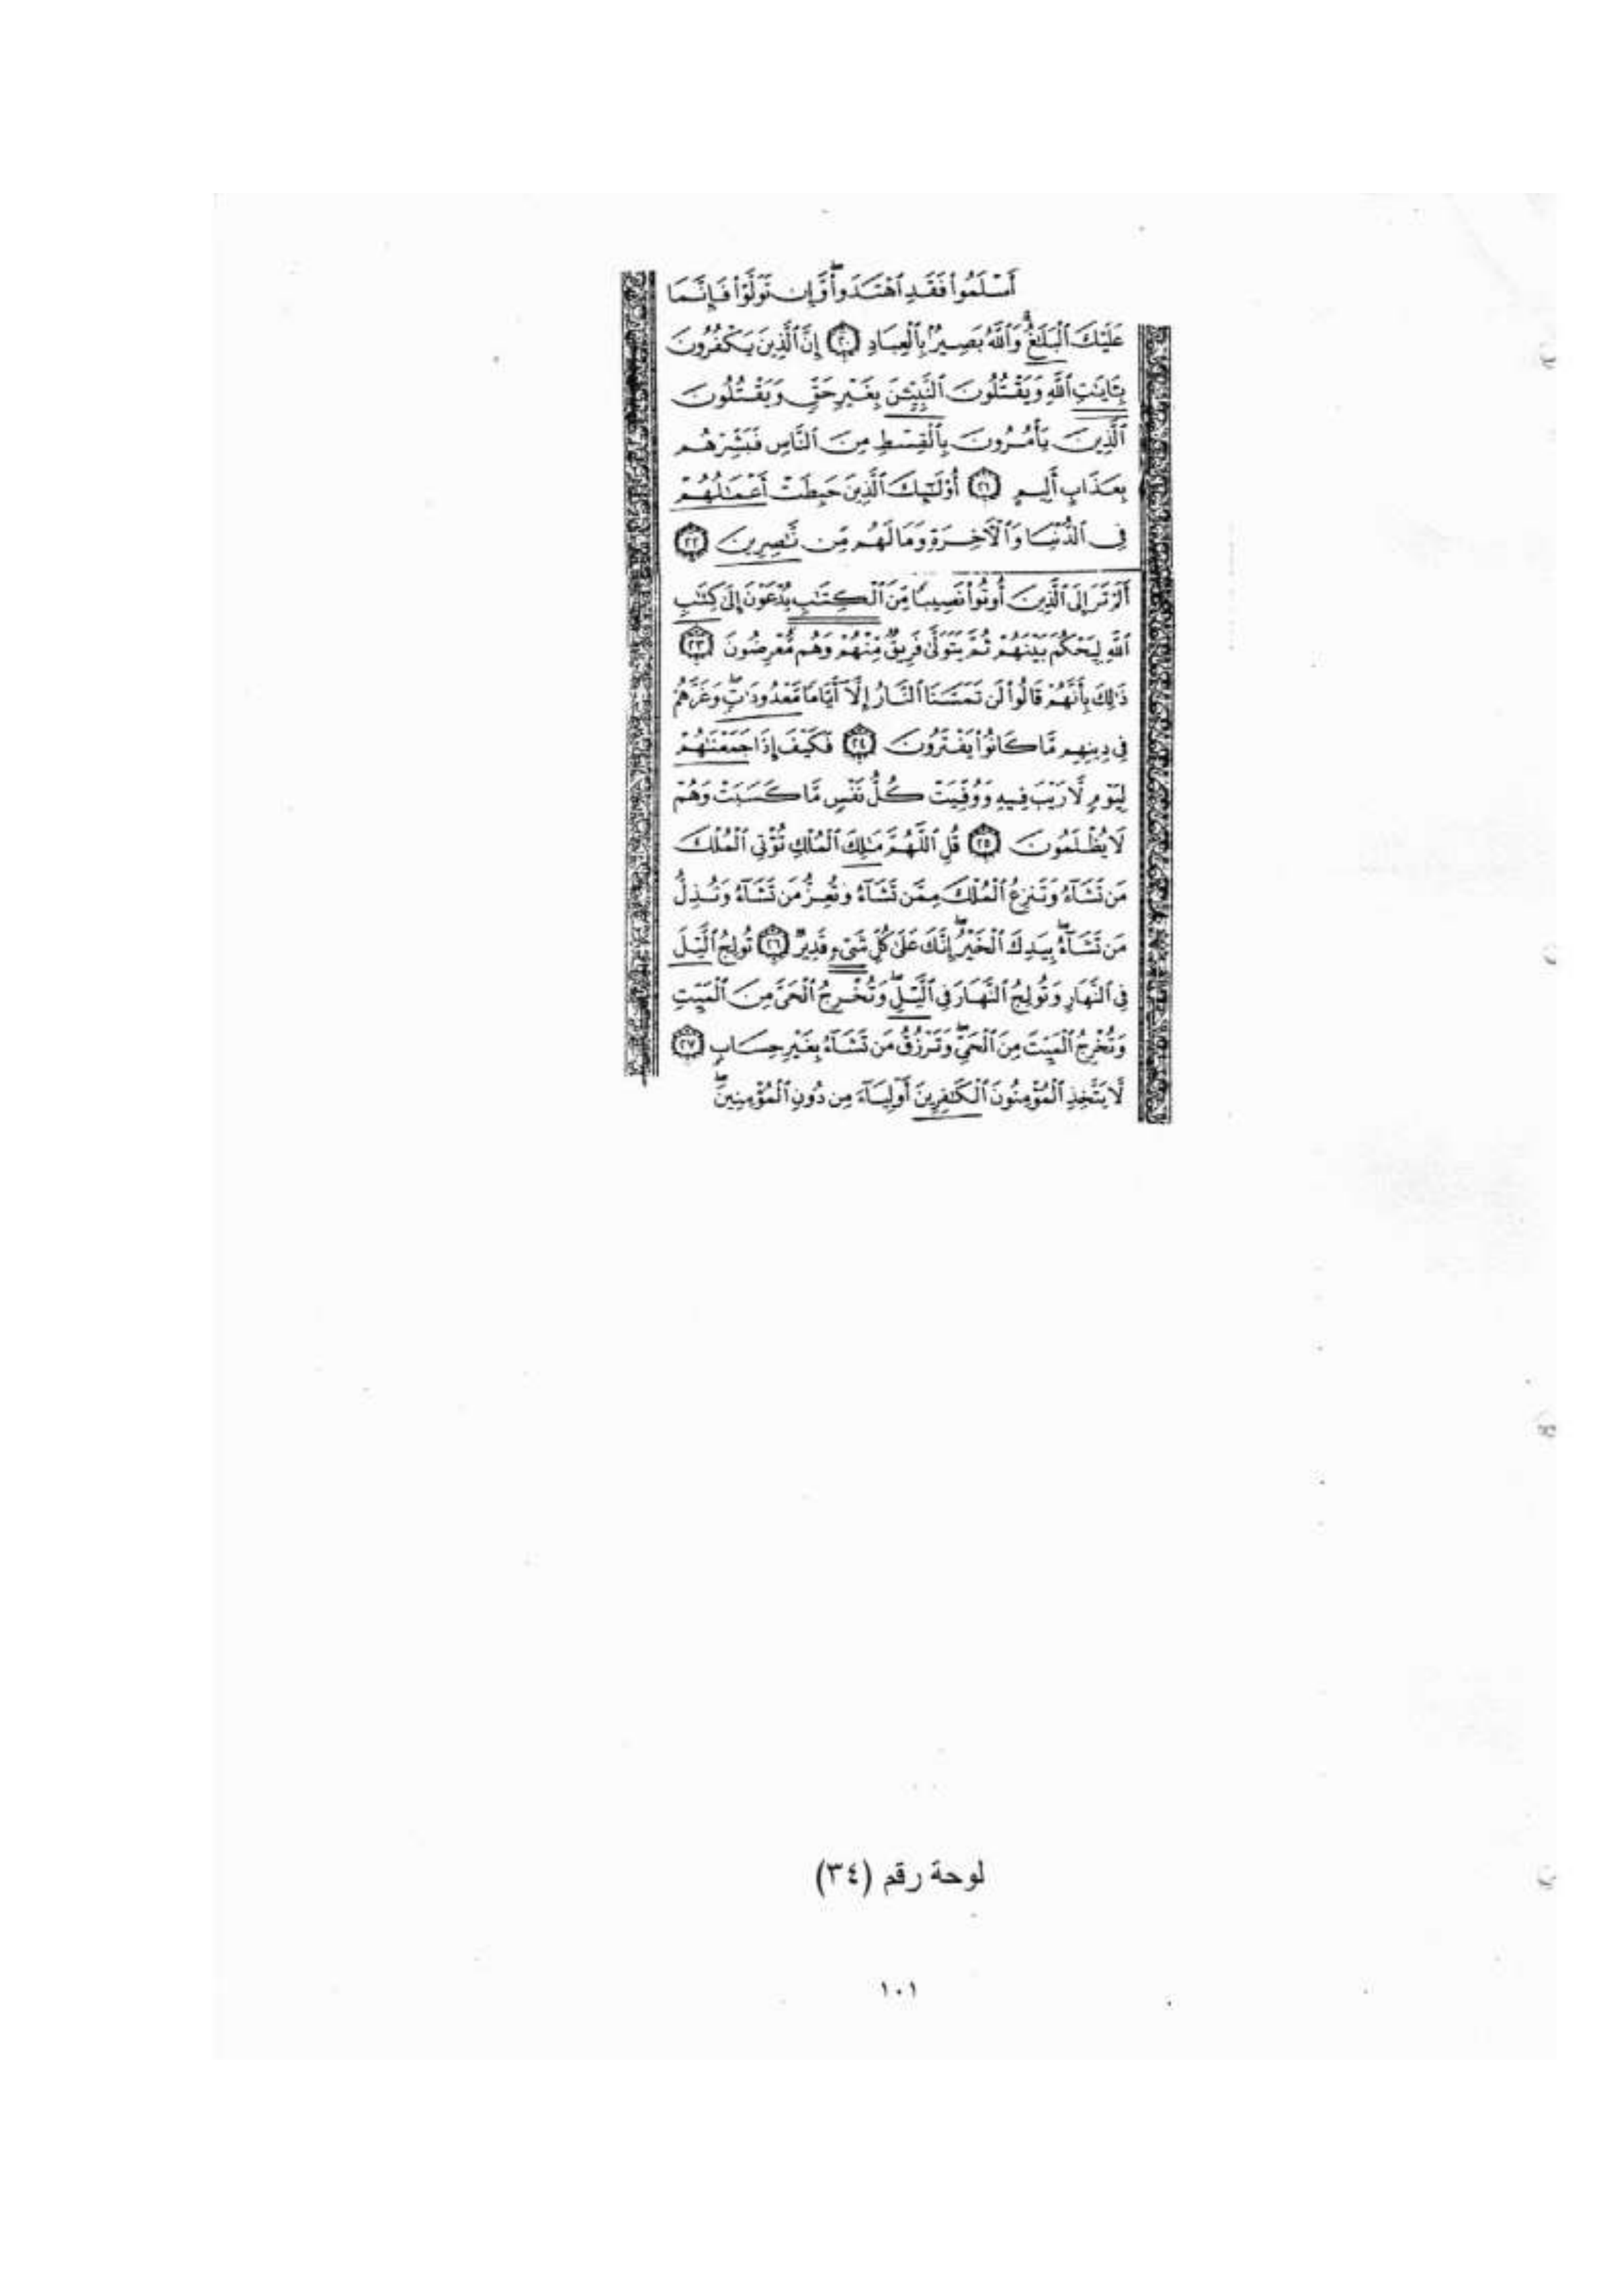 أَسْلَمُوا۟ فَقَدِ ٱهْتَدَوا۟ۖ وَّإِن تَوَلَّوْا۟ فَإِنَّمَا
عَلَيْكَ ٱلْبَلَـٰغُۗ وَٱللَّهُ بَصِيرٌۢ بِٱلْعِبَادِ ٢٠ إِنَّ ٱلَّذِينَ يَكْفُرُونَ
بِـَٔايَـٰتِ ٱللَّهِ وَيَقْتُلُونَ ٱلنَّبِيِّـۧنَ بِغَيْرِ حَقٍّ وَيَقْتُلُونَ
ٱلَّذِينَ يَأْمُرُونَ بِٱلْقِسْطِ مِنَ ٱلنَّاسِ فَبَشِّرْهُم
بِعَذَابٍ أَلِيمٍ ٢١ أُو۟لَـٰٓئِكَ ٱلَّذِينَ حَبِطَتْ أَعْمَـٰلُهُمْ
فِى ٱلدُّنْيَا وَٱلْـَٔاخِرَةِ وَمَا لَهُم مِّن نَّـٰصِرِينَ ٢٢
أَلَمْ تَرَ إِلَى ٱلَّذِينَ أُوتُوا۟ نَصِيبًا مِّنَ ٱلْكِتَـٰبِ يُدْعَوْنَ إِلَىٰ كِتَـٰبِ
ٱللَّهِ لِيَحْكُمَ بَيْنَهُمْ ثُمَّ يَتَوَلَّىٰ فَرِيقٌ مِّنْهُمْ وَهُم مُّعْرِضُونَ ٢٣
ذَٰلِكَ بِأَنَّهُمْ قَالُوا۟ لَن تَمَسَّنَا ٱلنَّارُ إِلَّآ أَيَّامًا مَّعْدُودَٰتٍۖ وَغَرَّهُمْ
فِى دِينِهِم مَّا كَانُوا۟ يَفْتَرُونَ ٢٤ فَكَيْفَ إِذَا جَمَعْنَـٰهُمْ
لِيَوْمٍ لَّا رَيْبَ فِيهِ وَوُفِّيَتْ كُلُّ نَفْسٍ مَّا كَسَبَتْ وَهُمْ
لَا يُظْلَمُونَ ٢٥ قُلِ ٱللَّهُمَّ مَـٰلِكَ ٱلْمُلْكِ تُؤْتِى ٱلْمُلْكَ
مَن تَشَآءُ وَتَنزِعُ ٱلْمُلْكَ مِمَّن تَشَآءُ وَتُعِزُّ مَن تَشَآءُ وَتُذِلُّ
مَن تَشَآءُۖ بِيَدِكَ ٱلْخَيْرُۖ إِنَّكَ عَلَىٰ كُلِّ شَىْءٍ قَدِيرٌ ٢٦ تُولِجُ ٱلَّيْلَ
فِى ٱلنَّهَارِ وَتُولِجُ ٱلنَّهَارَ فِى ٱلَّيْلِۖ وَتُخْرِجُ ٱلْحَىَّ مِنَ ٱلْمَيِّتِ
وَتُخْرِجُ ٱلْمَيِّتَ مِنَ ٱلْحَىِّۖ وَتَرْزُقُ مَن تَشَآءُ بِغَيْرِ حِسَابٍ ٢٧
لَّا يَتَّخِذِ ٱلْمُؤْمِنُونَ ٱلْكَـٰفِرِينَ أَوْلِيَآءَ مِن دُونِ ٱلْمُؤْمِنِينَۖ
لوحة رقم (٣٤)
١٠١